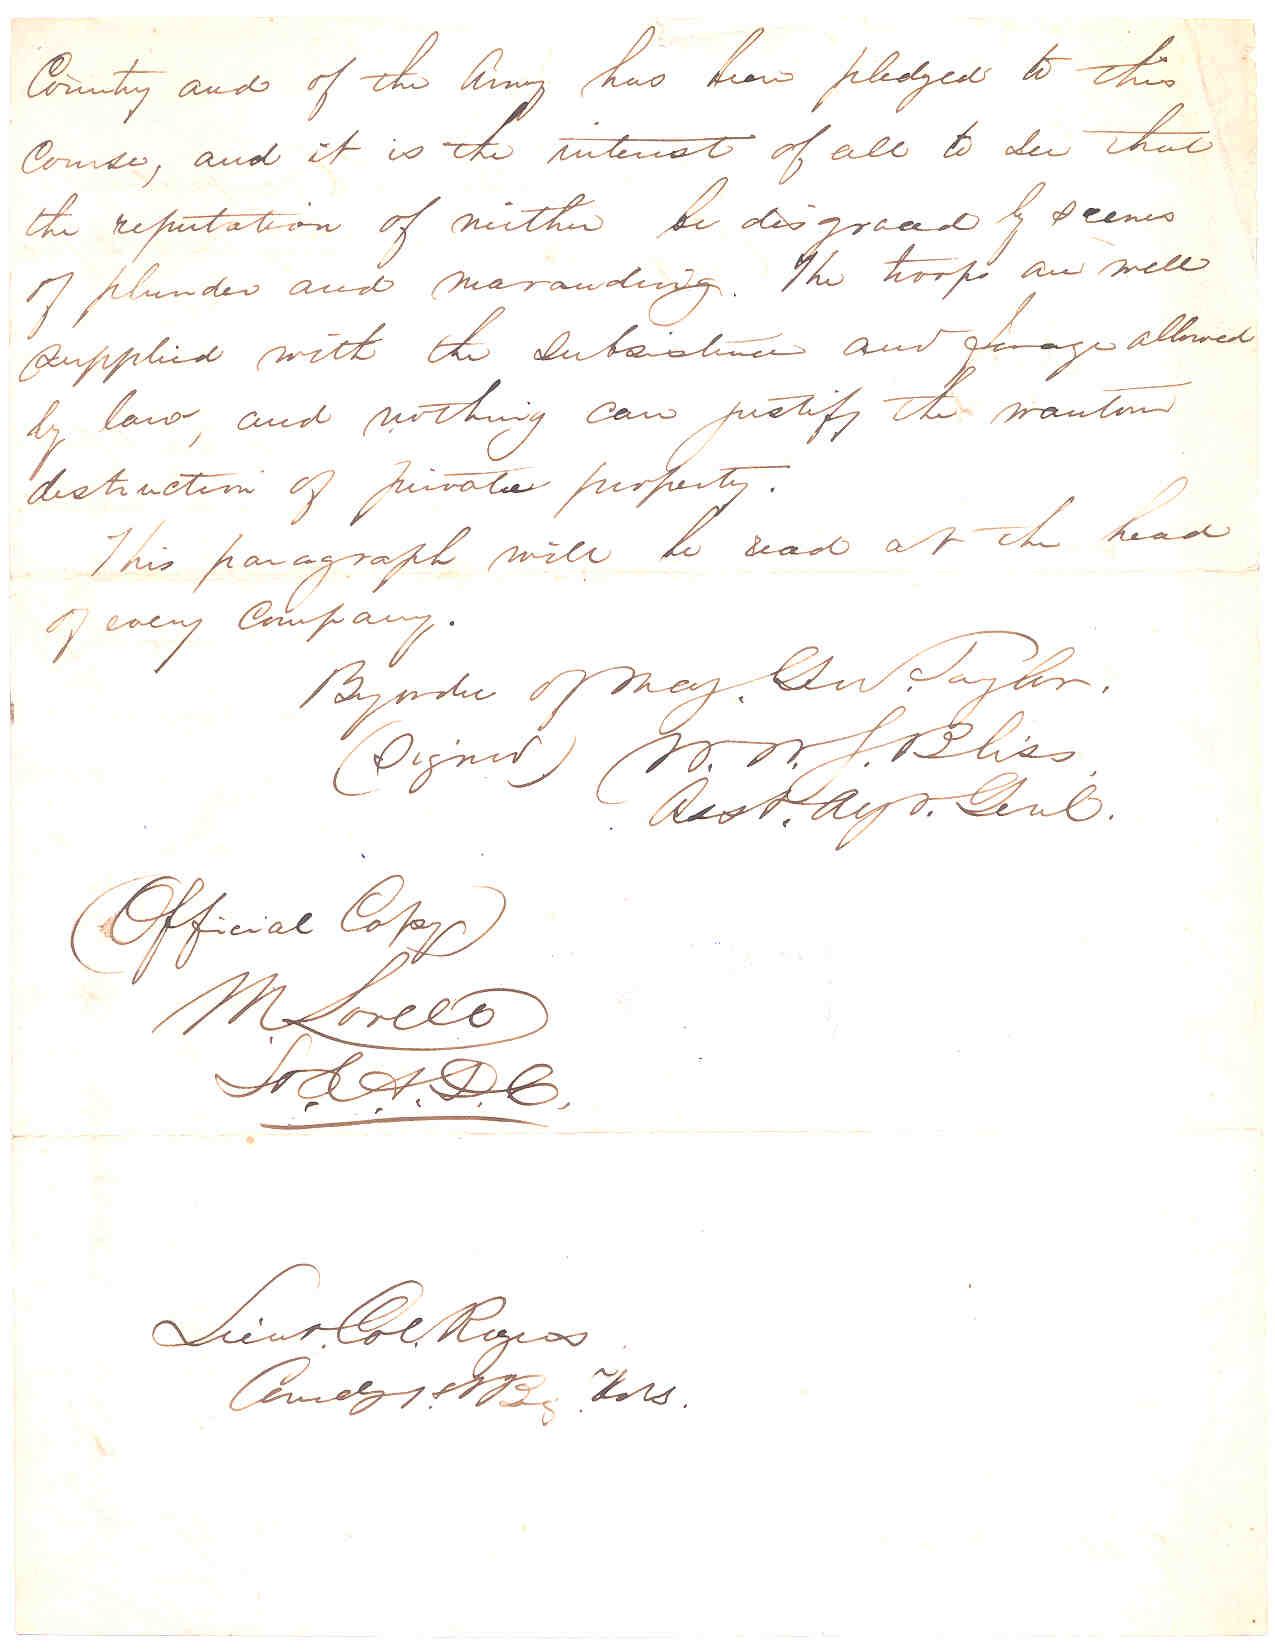 Country and of the Army has been pledged to this
course, and it is the interest of all to see that
the reputation of neither be disgraced by scenes
of plunder and marauding. The troops are well
supplied with the subsistence and forage allowed
by law, and nothing can justify the wanton
destruction of private property.
This paragraph will be read at the head
of every company.
By order of Maj. Gen. Taylor.
(Signed) W. W. J. Bliss
Asst. Adjt. Genl.
(Official Copy)
M Lovell
A. D. C.
Lieut. Col. Rogers
Comdg 1st Vols.